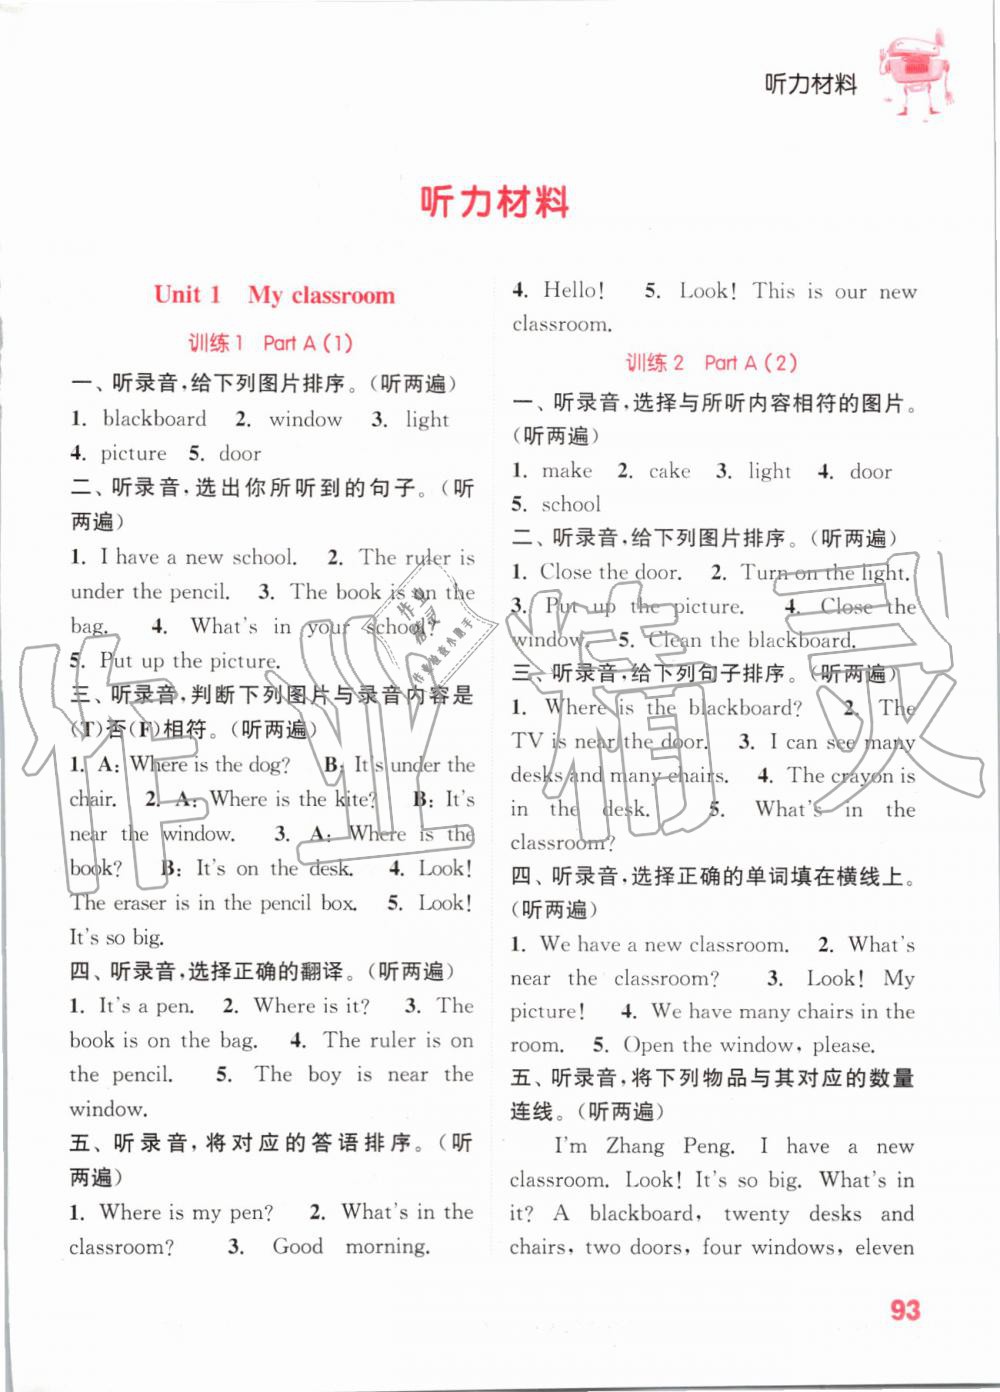 听力材料
听力材料
Unit 1 My classroom
训练1 Part A (1)
一、听录音,给下列图片排序。(听两遍)
1. blackboard 2. window 3. light
4. picture 5. door
二、听录音,选出你所听到的句子。(听
两遍)
1. I have a new school. 2. The ruler is
under the pencil. 3. The book is on the
bag. 4. What's in your school?
5. Put up the picture.
三、听录音,判断下列图片与录音内容是
(T)否(F)相符。(听两遍)
1. A: Where is the dog? B: It's under the
chair. 2. A: Where is the kite? B: It's
near the window. 3. A: Where is the
book? B: It's on the desk. 4. Look!
The eraser is in the pencil box. 5. Look!
It's so big.
四、听录音,选择正确的翻译。(听两遍)
1. It's a pen. 2. Where is it? 3. The
book is on the bag. 4. The ruler is on
the pencil. 5. The boy is near the
window.
五、听录音,将对应的答语排序。(听
两遍)
1. Where is my pen? 2. What's in the
classroom? 3. Good morning.
4. Hello! 5. Look! This is our new
classroom.
训练2 Part A (2)
一、听录音,选择与所听内容相符的图片。
(听两遍)
1. make 2. cake 3. light 4. door
5. school
二、听录音,给下列图片排序。(听两遍)
1. Close the door. 2. Turn on the light.
3. Put up the picture. 4. Close the
window. 5. Clean the blackboard.
三、听录音,给下列句子排序。(听两遍)
1. Where is the blackboard? 2. The
TV is near the door. 3. I can see many
desks and many chairs. 4. The crayon is
in the desk. 5. What's in the
classroom?
四、听录音,选择正确的单词填在横线上。
(听两遍)
1. We have a new classroom. 2. What's
near the classroom? 3. Look! My
picture! 4. We have many chairs in the
room. 5. Open the window, please.
五、听录音,将下列物品与其对应的数量
连线。(听两遍)
I'm Zhang Peng. I have a new
classroom. Look! It's so big. What's in
it? A blackboard, twenty desks and
chairs, two doors, four windows, eleven
93
作业精灵